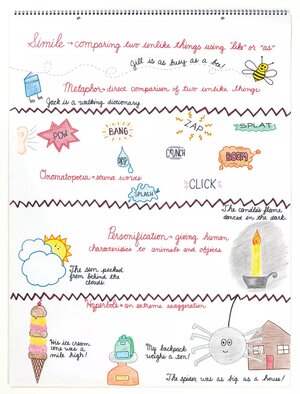 Simile → comparing two unlike things using "like" or "as"
Jill is as busy as a bee!
Metaphor → direct comparison of two unlike things
Jack is a walking dictionary
POW
BANG
ZAP
SPLAT
DRIP
CRUNCH
BOOM
Onomatopoeia → sound words
SPLASH
CLICK
The candle's flame
danced in the dark.
Personification → giving human
characteristics to animals and objects
The sun peeked
from behind the
clouds.
Hyperbole → an extreme exaggeration
His ice cream
cone was a
mile high!
My backpack
weighs a ton!
The spider was as big as a house!